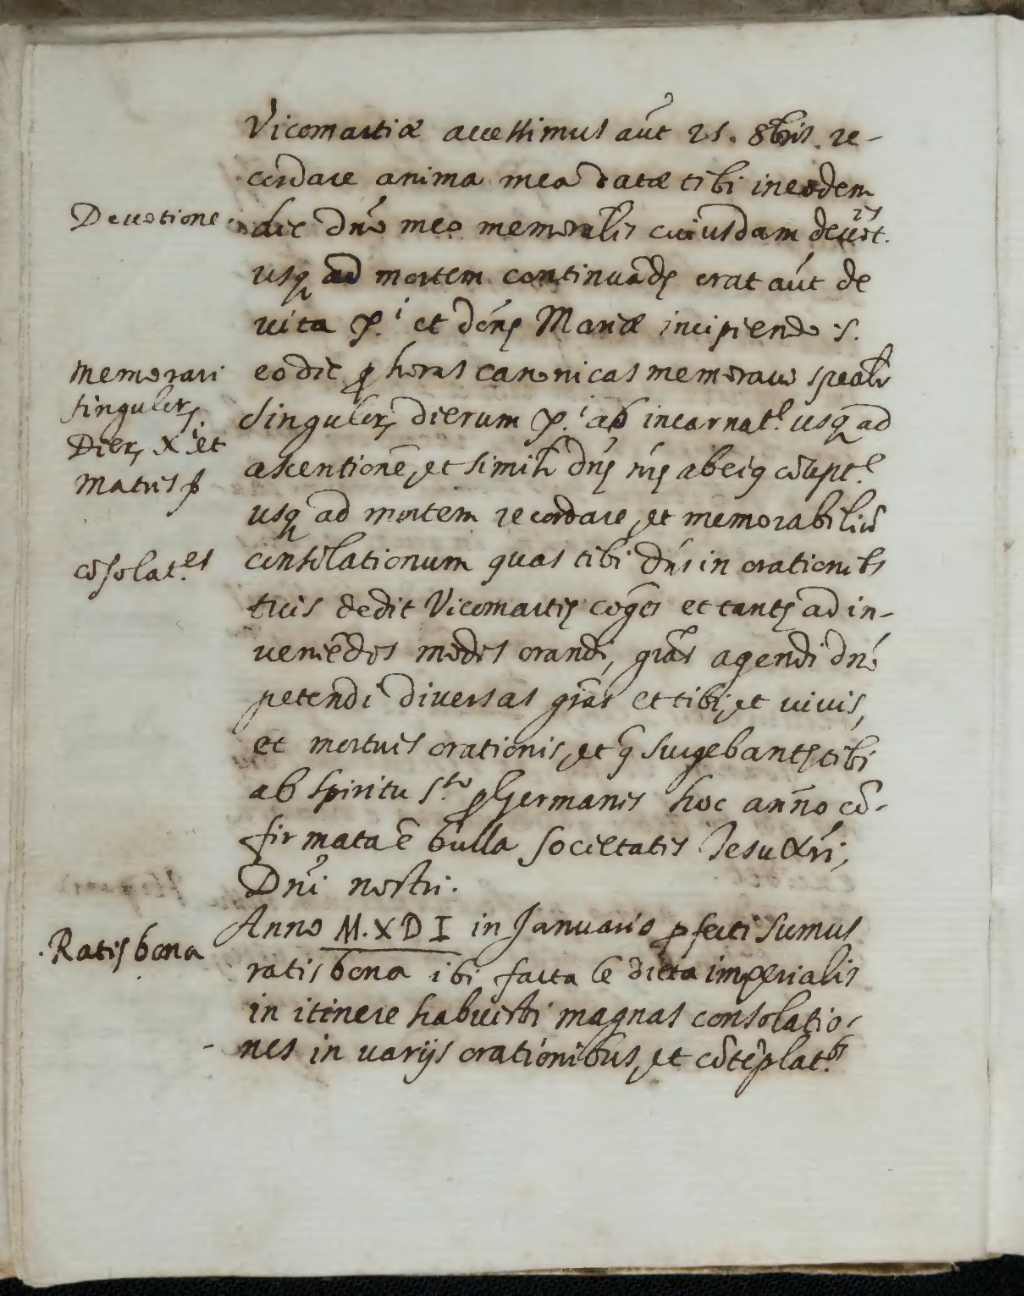 Vicomartiæ accessimus aũt 25. 8bris. re-
cordare anima mea datæ tibi in eodem
Deuotione
die dño meo memorialis cuiusdam deuot.is
usq ad mortem continuãdę erat aũt de
uita X.i et dñę Mariæ incipiendo s.
memorari
singuler,
Dier, Xi et
matris
eo die p horas canonicas memoraui spealr
singuler, dierum X.i ab incarnat.e usq ad
ascentionẽ, et similr dñę nrę ab eiq cõcept.e
usq ad mortem recordare, et memorabiliũ
cõsolat.es
consolationum quas tibi Dñs in orationibs
tuis dedit Vicomartię et tantę ad in-
ueniẽdos modos orandi, grãs agendi dnõ
petendi diuersas grãs et tibi, et uiuis,
et mortuis orationis, et q surgebant tibi
ab spiritu s.to p Germanis hoc anño cõ-
firmata ẽ bulla societatis Iesu Xri,
Dnĩ nostri.
Ratisbona
Anno M.XDI in Januario pfecti sumus
ratisbona ibi facta ẽ dieta imperialis
in itinere habuisti magnas consolatio-
nes in uarijs orationibus, et cõtẽplat.bs